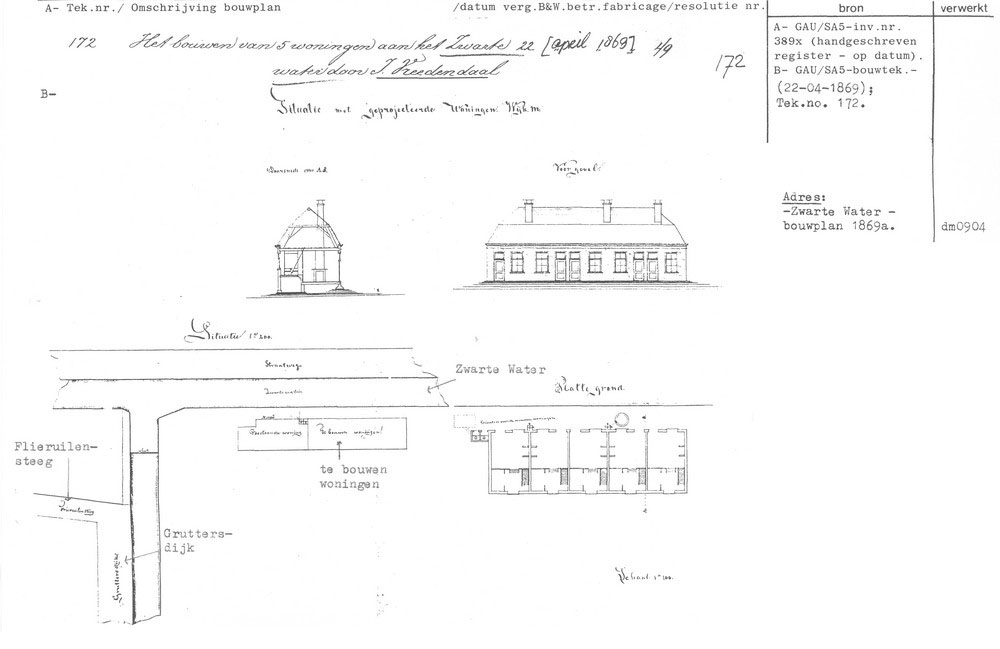 A- Tek.nr./ Omschrijving bouwplan /datum verg.B&W.betr.fabricage/resolutie nr.
bron
verwerkt
172 Het bouwen van 5 woningen aan het Zwarte 22 [april 1869] 4/9
water door J. Vreedendaal
172
A- GAU/SA5-inv.nr.
389x (handgeschreven
register - op datum).
B- GAU/SA5-bouwtek.-
(22-04-1869);
Tek.no. 172.
B-
Situatie met geprojecteerde Woningen. Wijk M.
Doorsnede over A.B.
Voorgevel.
Adres:
-Zwarte Water -
bouwplan 1869a.
dm0904
Situatie 1 à 200.
Straatweg
Zwarte water
Zwarte Water
Platte grond
Te bouwen woningen
Flieruilen-
steeg
te bouwen
woningen
Grutters-
dijk
Gruttersdijk
Schaal 1 à 100.